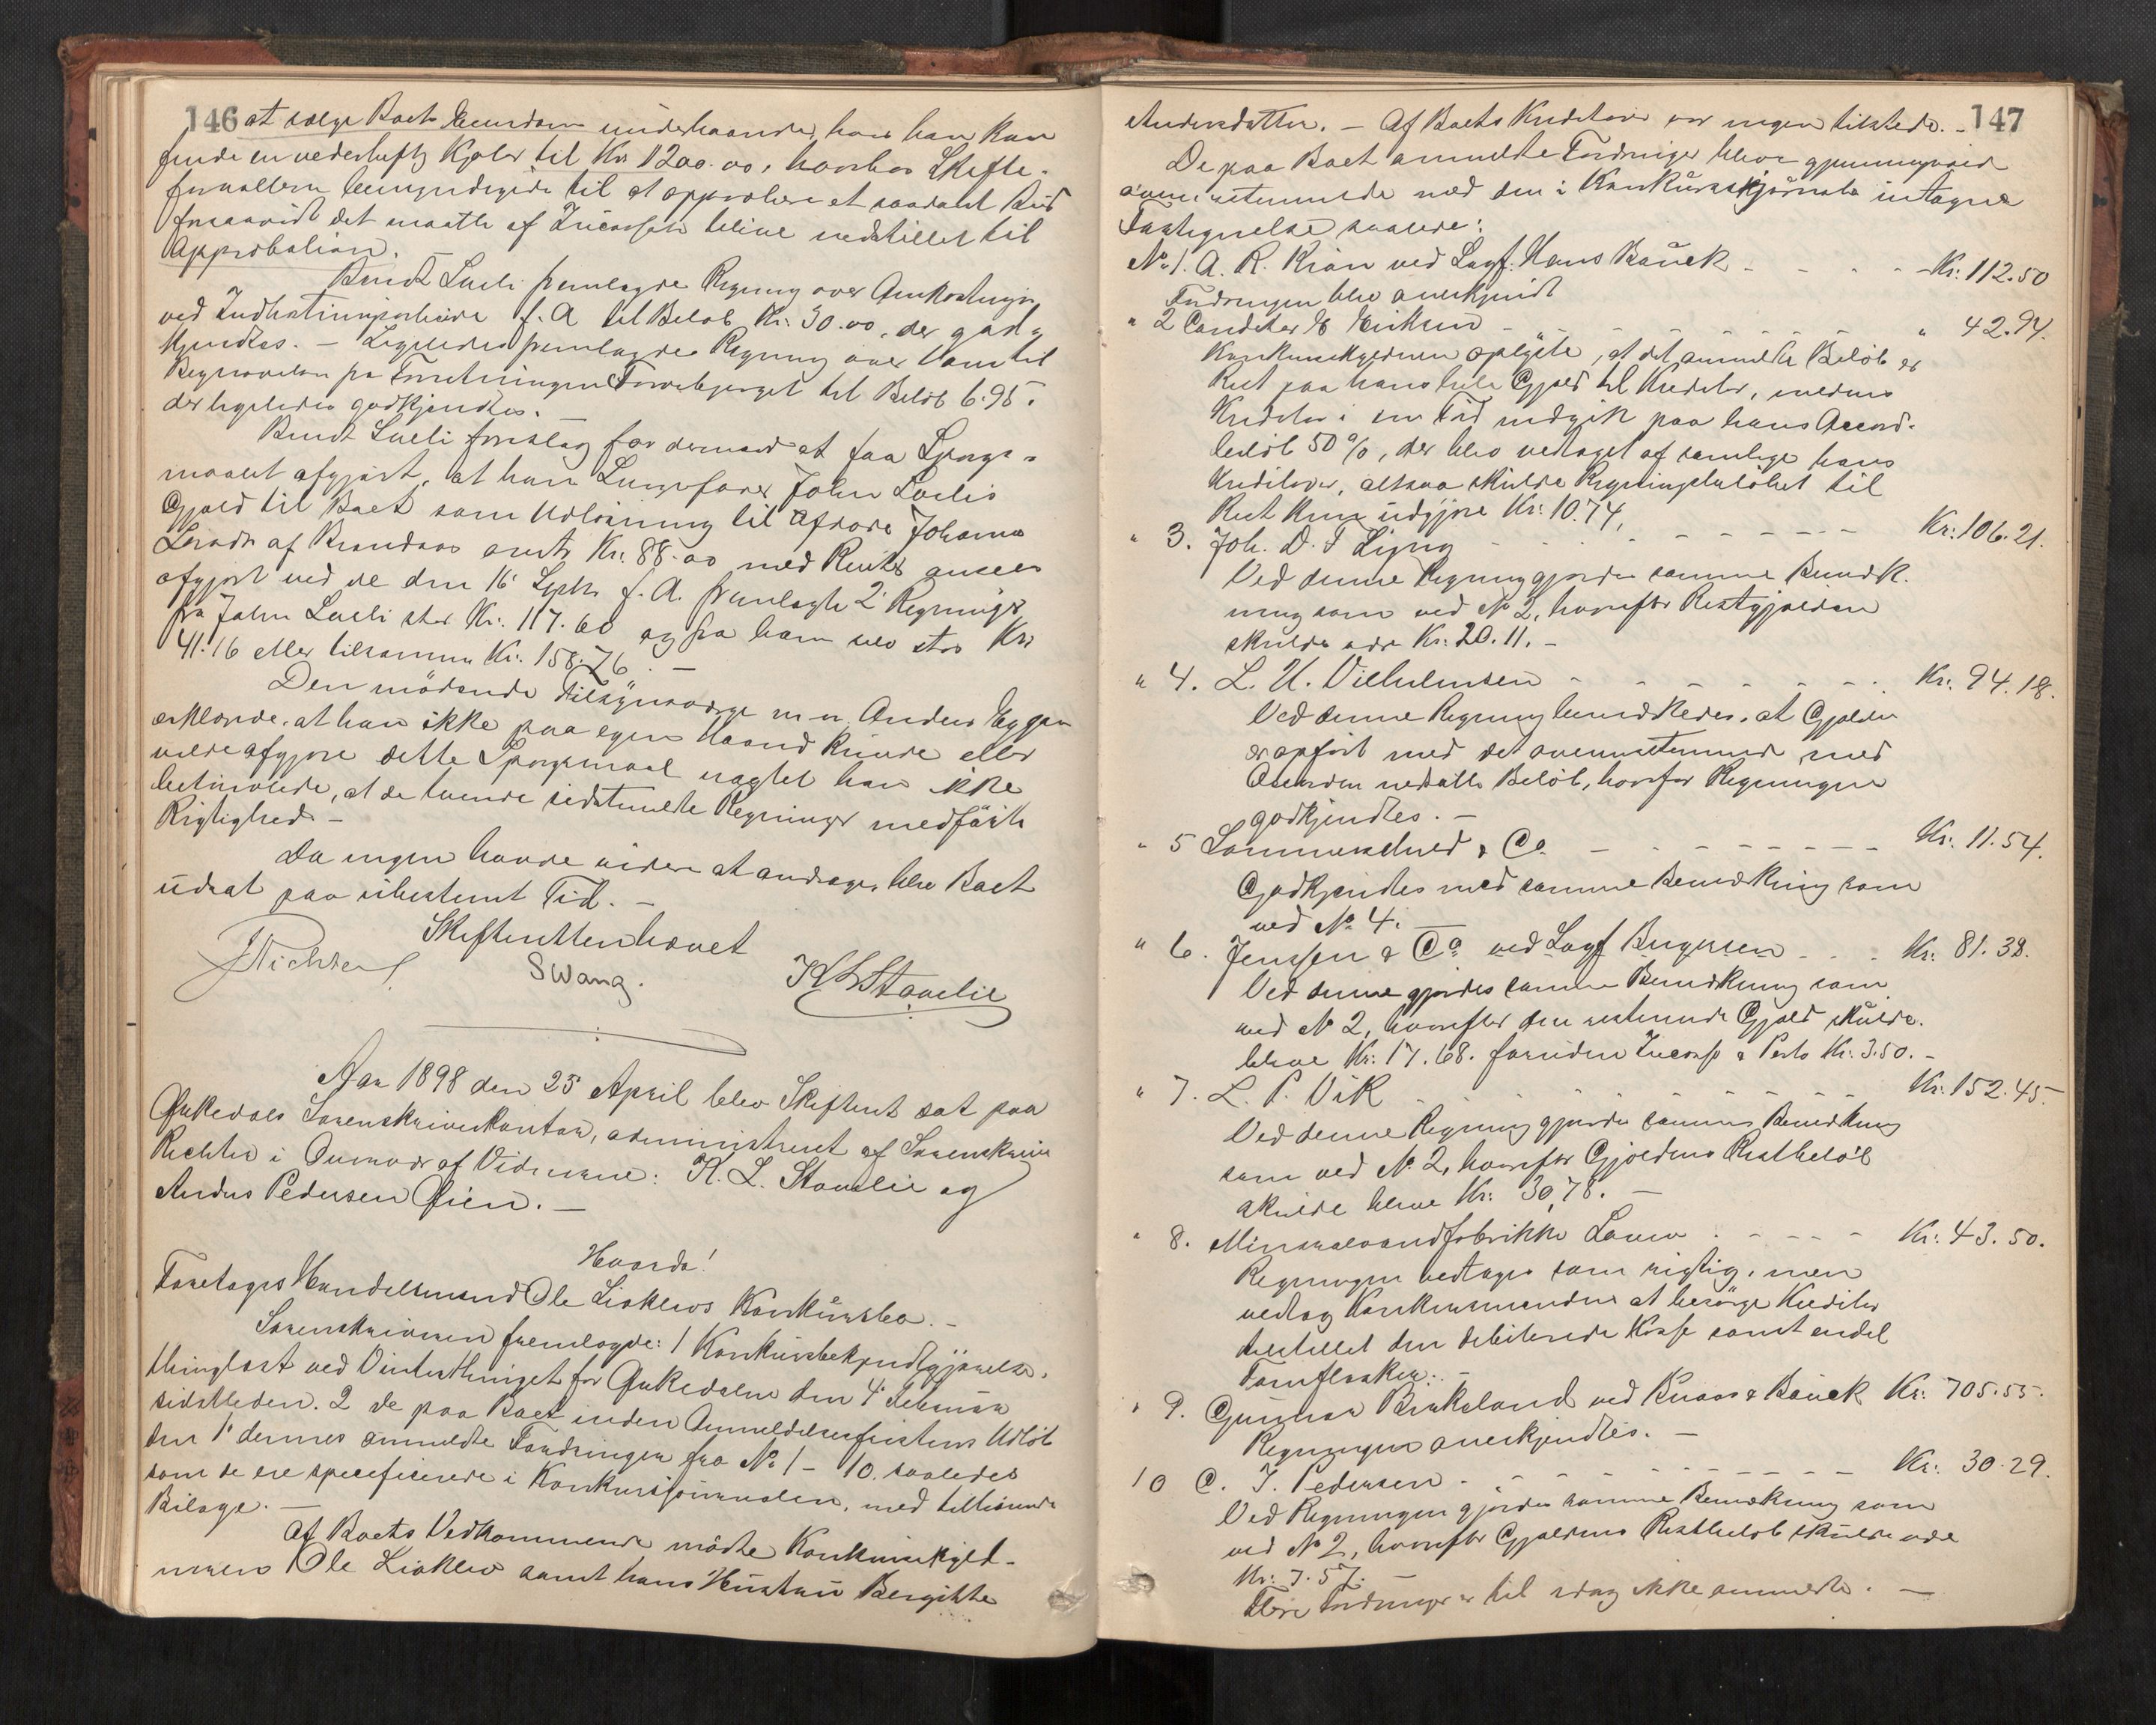 146 at sælge Boets Eiendom underhaanden, hvis han kan
finde en vederheftig Kjøber til Kr. 1200.00, hvorhos Skifte-
forvalteren bemyndigede til at approbere et saadant Bud
forsaavidt det maatte af Incassator blive indstillet til
Approbation.
Bendt Lueli fremlagde Regning over Omkostninger
ved Indhøstningsarbeide f. A. til Beløb Kr. 30.00, der god-
kjendtes. — Ligeledes fremlagdes Regning over Varer til
Begravelsen fra Forretningen Torvebjerget til Beløb 6.95.
der ligeledes godkjendtes. —
Bendt Lueli foreslog for dermed at faa Spørgs-
maalet afgjort, at han Lungefarer John Luelis
Gjæld til Boet som Udløsning til afdøde Johanna
af Brandaas Kr. 88.00 med Renter ansees
afgjort ved de den 16 Septr f. A. fremlagte 2 Regninger
fra John Lueli stor Kr. 117.60 og fra ham selv stor Kr.
41.16 eller tilsammen Kr. 158.76. —
Den mødende Tilsynsværge m. m. Anders Eggen
erklærede, at han ikke paa egen Haand kunde eller
vilde afgjøre dette Spørgsmaal uagtet han ikke
betvivlede, at de tvende sidstmeldte Regninger medførte
Rigtighed. —
Da ingen havde videre at andrage, blev Boet
udsat paa ubestemt Tid. —
Skifteretten hævet
JRichter. SWang. KLStavelie
Aar 1898 den 25 April blev Skifteret sat paa
Orkedals Sorenskriverkontor, administreret af Sorenskriver
Richter i Overvær af Vidnerne: K. L. Stavelie og
Anders Pedersen Øien. —
Hvorda!
Foretages Handelsmand Ole Lioklevs Konkursbo. —
Sorenskriveren fremlagde: 1 Konkursbekjendtgjørelse,
thinglæst ved Vinterthinget for Orkedalen den 4 Februar
sidstleden. 2 de paa Boet inden Anmeldelsesfristens Udløb
den 1 dennes anmeldte Fordringer fra No 1 – 10. saaledes
som de ere specificerede i Konkursjournalen, med tilhørende
Bilage. —
Af Boets Vedkommende mødte Konkursskyld-
neren Ole Lioklev samt hans Hustru Bergitte
147
Andersdatter. — Af Boets Kreditorer var ingen tilstede. —
De paa Boet anmeldte Fordringer blev gjennemgaaede
overensstemmende med den i Konkursskjournalen indtagne
Fortegnelse saaledes:
No 1. A. R. Krøn ved Sagf. Hans Bauck - - - - Kr: 112.50
Fordringen blev anerkjendt
" 2 Canditer E Eriksen - - - - - " 42.94.
Konkursskyldneren oplyste, at det anmeldte Beløb er
Rest paa hans hele Gjæld til Kreditor, medens
Kreditor i sin Tid indgik paa hans Accord-
beløb 50 %, der blev vedtaget af samtlige hans
Kreditorer, altsaa skulde Regningsbeløbet til
Rest kun udgjøre Kr: 10.74,
" 3. Joh. D. S Ligng - - - - - Kr: 106.21.
Ved denne Regning gjordes samme Bemærk-
ning som ved No 2, hvorefter Restgjælden
skulde være Kr: 20.11. —
" 4. L. U. Vilhelmsen - - - - - Kr: 94.18.
Ved denne Regning bemærkedes, at Gjælden
er opført med det overensstemmende med
Accorden nedsatte Beløb, hvorfor Regningen
godkjendtes. —
" 5 Sommerschield & Co. - - - - - Kr. 11.54.
Godkjendtes med samme Bemærkning som
ved No 4. —
" 6. Jenssen & Co ved Sagf Bugersen - - - Kr: 81.38.
Ved denne gjordes samme Bemærkning som
ved No 2, hvorefter den resterende Gjæld skulde
blive Kr: 17.68. foruden Incasso & Porto Kr. 3.50. —
" 7. L. P. Vik - - - - - Kr: 152.45
Ved denne Regning gjordes samme Bemærkning
som ved No 2, hvorefter Gjældens Restbeløb
skulde blive Kr: 30,78. —
" 8. Mineralvandfabrikken - - - - Kr: 43.50.
Regningen vedtages som rigtig, men
vedtog Konkursmanden at besørge Kreditor
tilstillet den debiterede Kasse samt endel
Tomflasker. —
" 9. Gunnar Birkeland ved Knoss & Bauck Kr: 705.55.
Regningen anerkjendtes. —
10 C. J. Pedersen - - - - - Kr: 30.29.
Ved Regningen gjordes samme Bemærkning som
ved No 2, hvorefter Gjældens Restbeløb skulde være
Kr: 7.57. —
Flere Fordringer er til idag ikke anmeldte. —